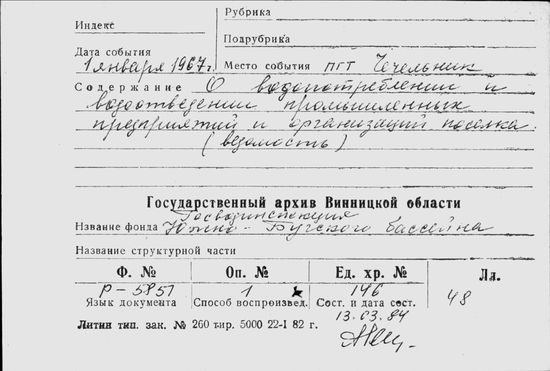 Рубрика
Индекс
Подрубрика
Дата события
1 января 1967 г. Место события пгт Чечельник
Содержание О водопотреблении и
водоотведении промышленных
предприятий и организаций поселка.
(ведомость)
Государственный архив Винницкой области
Госводинспекция
Название фонда Южно-Бугского бассейна
Название структурной части
Ф. № Оп. № Ед. хр. № Лл.
Р-5851 1 146 48
Язык документа Способ воспроизвед. Сост. и дата сост.
13.03.84
Литин тип. зак. № 260 тир. 5000 22-I 82 г.